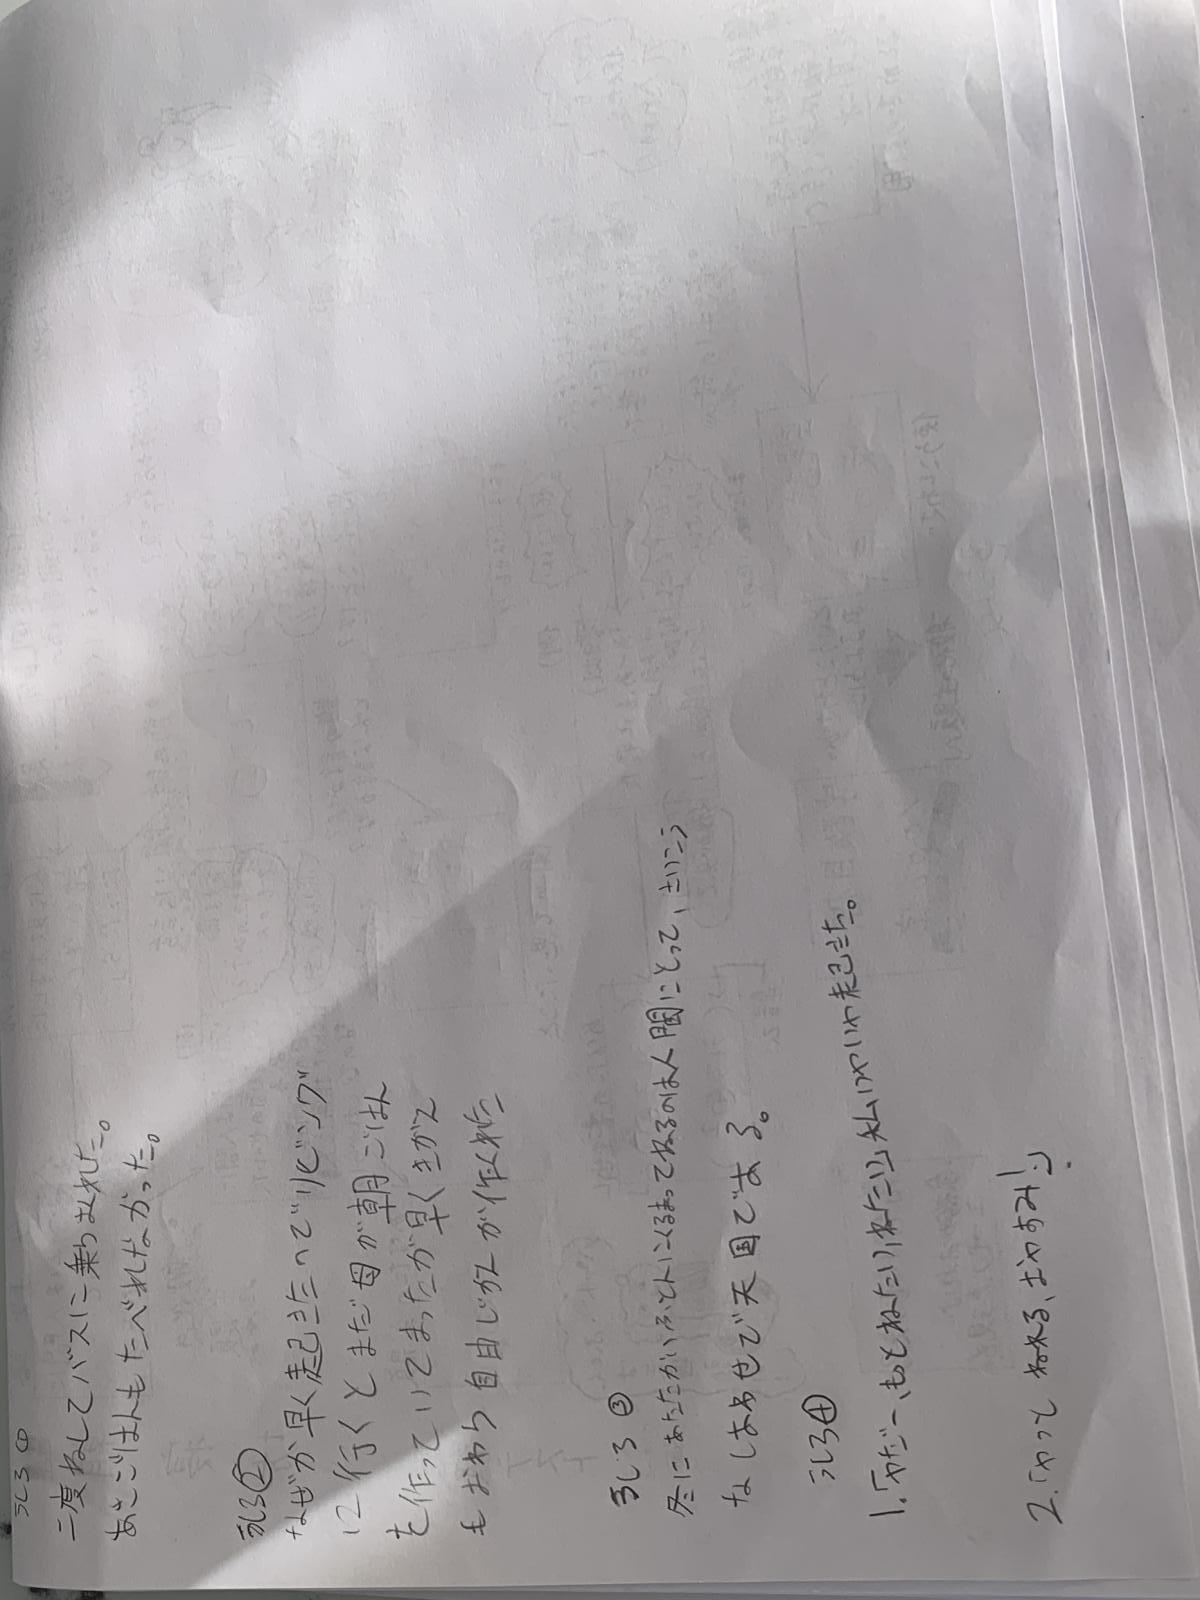 うしろ①
二度ねしてバスに乗りおくれた。
あさごはんもたべれなかった。
うしろ②
なぜか早く起きたってでリビング
に行くとまだ母が朝ごはん
を作っていてまったが早くきがえ
もおわり自由じかんが作くれた
うしろ③
冬にあたたかいふとんにくるまってねるのは人間にとって、さいこう
なしあわせで天国である。
うしろ④
1.「やだー、もとねたい、ねたい」私いやいや起きた。
2.「やっと ねれる、おやすみ!」